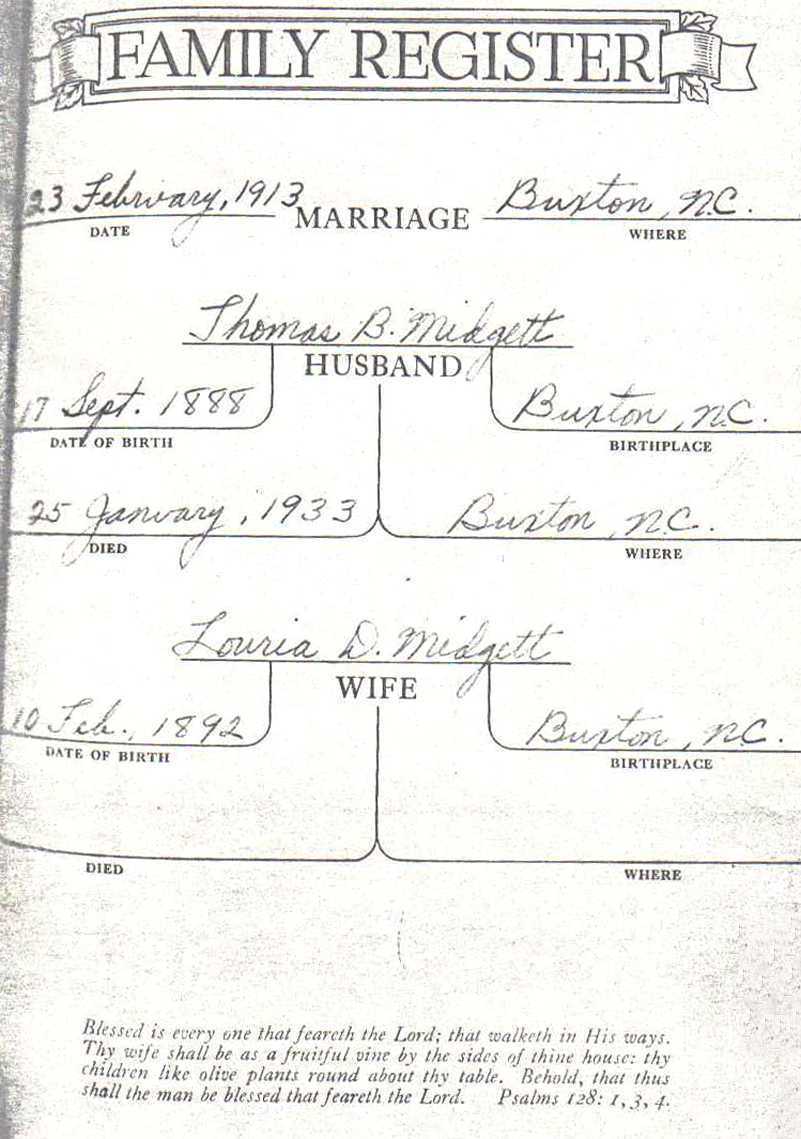 FAMILY REGISTER
23 February, 1913 MARRIAGE Buxton, N.C.
DATE WHERE
Thomas B. Midgett
HUSBAND
17 Sept. 1888 Buxton, N.C.
DATE OF BIRTH BIRTHPLACE
25 January, 1933 Buxton, N.C.
DIED WHERE
Louria D. Midgett
WIFE
10 Feb., 1892 Buxton, N.C.
DATE OF BIRTH BIRTHPLACE
DIED WHERE
Blessed is every one that feareth the Lord; that walketh in His ways.
Thy wife shall be as a fruitful vine by the sides of thine house: thy
children like olive plants round about thy table. Behold, that thus
shall the man be blessed that feareth the Lord. Psalms 128: 1, 3, 4.